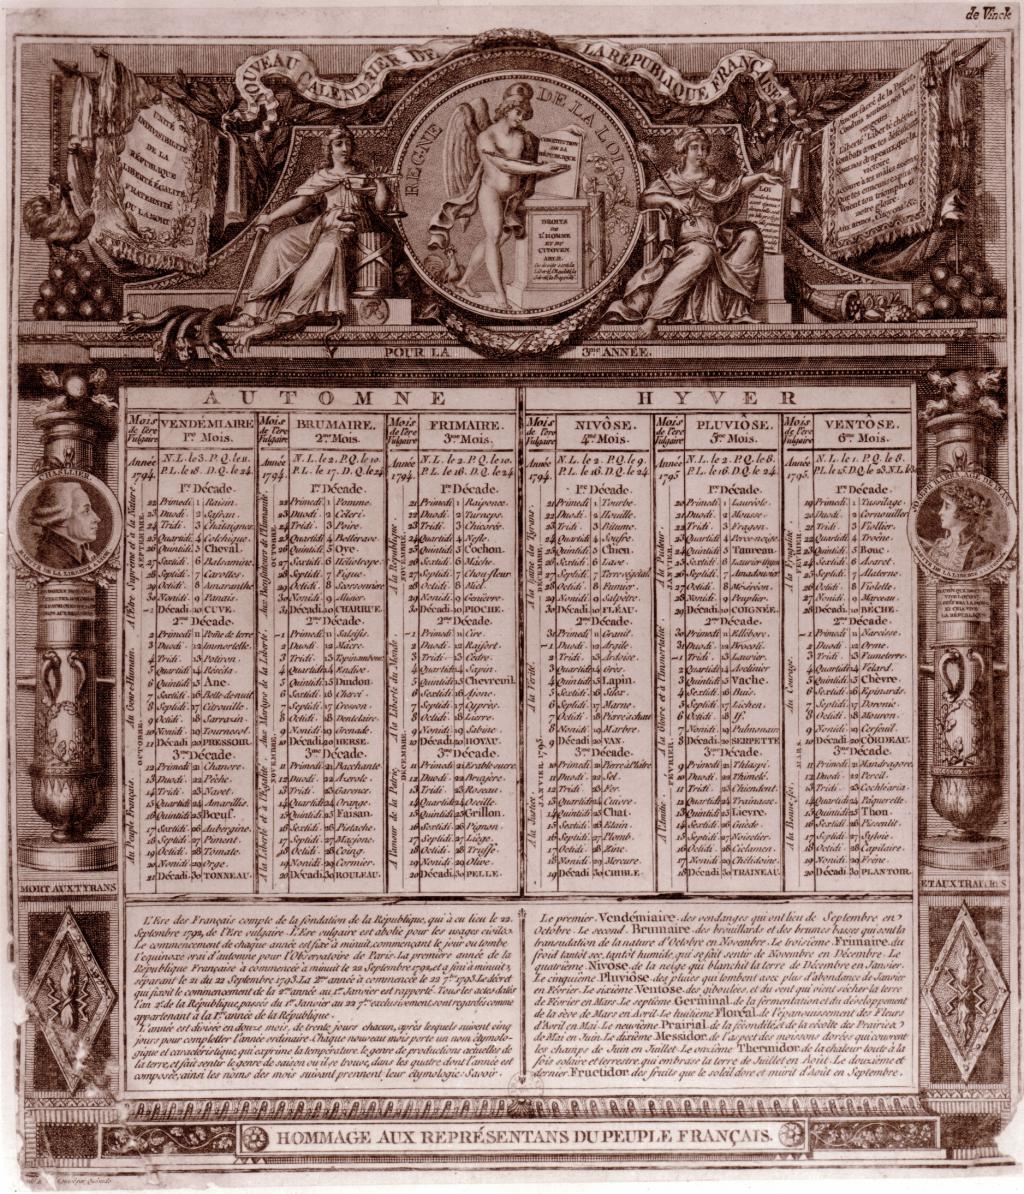 de Vinck
NOUVEAU CALENDRIER DE LA RÉPUBLIQUE FRANÇAISE
REGNE DE LA LOI
UNITÉ
INDIVISIBILITÉ
DE LA
RÉPUBLIQUE
LIBERTÉ EGALITÉ
FRATERNITÉ
OU LA MORT
CONSTITUTION
DE LA
RÉPUBLIQUE
DROITS
DE
L'HOMME
ET DU
CITOYEN
LOI
Amour sacré de la Patrie
Conduis soutiens nos bras
vengeurs
Liberté Liberté chérie
Combats avec tes défenseurs
Sous nos drapeaux que la
victoire
POUR LA 3me ANNÉE.
AUTOMNE
HYVER
Mois de l'ère Vulgaire
VENDÉMIAIRE
1er Mois.
Mois de l'ère Vulgaire
BRUMAIRE.
2me Mois.
Mois de l'ère Vulgaire
FRIMAIRE.
3me Mois.
Mois de l'ère Vulgaire
NIVÔSE.
4me Mois.
Mois de l'ère Vulgaire
PLUVIÔSE.
5me Mois.
Mois de l'ère Vulgaire
VENTÔSE.
6me Mois.
Année 1794.
N.L. le 3. P.Q. le 11.
P.L. le 18. D.Q. le 24
1re Décade.
22 Primedi 1 Raisin.
23 Duodi 2 Safran.
24 Tridi 3 Châtaignes
25 Quartidi 4 Colchique
26 Quintidi 5 Cheval.
27 Sextidi 6 Balsamine
28 Septidi 7 Carottes
29 Octidi 8 Amaranthe
30 Nonidi 9 Panais
1 Décadi 10 CUVE.
2me Décade.
2 Primedi 11 Pome de terre
3 Duodi 12 Immortelle.
4 Tridi 13 Potiron
5 Quartidi 14 Réséda
6 Quintidi 15 Ane
7 Sextidi 16 Belle-de-nuit
8 Septidi 17 Citrouille
9 Octidi 18 Sarrazin
10 Nonidi 19 Tournesol
11 Décadi 20 PRESSOIR
3me Décade.
12 Primedi 21 Chanvre
13 Duodi 22 Pêche
14 Tridi 23 Navet
15 Quartidi 24 Amarillis
16 Quintidi 25 Bœuf.
17 Sextidi 26 Aubergine
18 Septidi 27 Piment
19 Octidi 28 Tomate
20 Nonidi 29 Orge.
21 Décadi 30 TONNEAU.
Année 1794.
N.L. le 2. P.Q. le 10.
P.L. le 17. D.Q. le 24
1re Décade.
22 Primedi 1 Pomme
23 Duodi 2 Céleri
24 Tridi 3 Poire
25 Quartidi 4 Betterave
26 Quintidi 5 Oye.
27 Sextidi 6 Héliotrope
28 Septidi 7 Figue
29 Octidi 8 Scorsonnère
30 Nonidi 9 Alisier
31 Décadi 10 CHARRUE
2me Décade.
1 Primedi 11 Salsifis
2 Duodi 12 Mâcre
3 Tridi 13 Topinambour
4 Quartidi 14 Endive
5 Quintidi 15 Dindon
6 Sextidi 16 Chervi
7 Septidi 17 Cresson
8 Octidi 18 Dentelaire
9 Nonidi 19 Grenade
10 Décadi 20 HERSE
3me Décade.
11 Primedi 21 Bacchante
12 Duodi 22 Azerole
13 Tridi 23 Garence
14 Quartidi 24 Orange
15 Quintidi 25 Faisan
16 Sextidi 26 Pistache
17 Septidi 27 Macjonc
18 Octidi 28 Coing
19 Nonidi 29 Cormier
20 Décadi 30 ROULEAU.
Année 1794.
N.L. le 2. P.Q. le 10.
P.L. le 16. D.Q. le 24
1re Décade.
21 Primedi 1 Raiponce
22 Duodi 2 Turneps
23 Tridi 3 Chicorée
24 Quartidi 4 Nefle
25 Quintidi 5 Cochon
26 Sextidi 6 Mâche
27 Septidi 7 Choufleur
28 Octidi 8 Miel
29 Nonidi 9 Genièvre
30 Décadi 10 PIOCHE.
2me Décade.
1 Primedi 11 Cire
2 Duodi 12 Raifort
3 Tridi 13 Cèdre
4 Quartidi 14 Sapin
5 Quintidi 15 Chevreuil
6 Sextidi 16 Ajonc
7 Septidi 17 Cyprès
8 Octidi 18 Lierre
9 Nonidi 19 Sabine
10 Décadi 20 HOYAU.
3me Décade.
11 Primedi 21 Erable-sucre
12 Duodi 22 Bruyère
13 Tridi 23 Roseau
14 Quartidi 24 Oseille
15 Quintidi 25 Grillon
16 Sextidi 26 Pignon
17 Septidi 27 Liège
18 Octidi 28 Truffe
19 Nonidi 29 Olive
20 Décadi 30 PELLE.
Année 1794.
N.L. le 2. P.Q. le 9.
P.L. le 16. D.Q. le 24
1re Décade.
21 Primedi 1 Tourbe
22 Duodi 2 Houille
23 Tridi 3 Bitume
24 Quartidi 4 Soufre
25 Quintidi 5 Chien
26 Sextidi 6 Lave
27 Septidi 7 Terre végétale
28 Octidi 8 Fumier
29 Nonidi 9 Salpêtre
30 Décadi 10 FLÉAU.
2me Décade.
31 Primedi 11 Granit
1 Duodi 12 Argile
2 Tridi 13 Ardoise
3 Quartidi 14 Grès
4 Quintidi 15 Lapin
5 Sextidi 16 Silex
6 Septidi 17 Marne
7 Octidi 18 Pierre à chaux
8 Nonidi 19 Marbre
9 Décadi 20 VAN.
3me Décade.
10 Primedi 21 Pierre à Plâtre
11 Duodi 22 Sel
12 Tridi 23 Fer
13 Quartidi 24 Cuivre
14 Quintidi 25 Chat
15 Sextidi 26 Etain
16 Septidi 27 Plomb
17 Octidi 28 Zinc
18 Nonidi 29 Mercure
19 Décadi 30 CRIBLE
Année 1795
N.L. le 2. P.Q. le 8.
P.L. le 16. D.Q. le 24
1re Décade.
20 Primedi 1 Lauréole
21 Duodi 2 Mousse
22 Tridi 3 Fragon
23 Quartidi 4 Perce-neige
24 Quintidi 5 Taureau
25 Sextidi 6 Laurier-thym
26 Septidi 7 Amadouvier
27 Octidi 8 Mézéréon
28 Nonidi 9 Peuplier
29 Décadi 10 COIGNÉE
2me Décade.
30 Primedi 11 Ellébore
31 Duodi 12 Brocoli
1 Tridi 13 Laurier
2 Quartidi 14 Avelinier
3 Quintidi 15 Vache
4 Sextidi 16 Buis
5 Septidi 17 Lichen
6 Octidi 18 If
7 Nonidi 19 Pulmonaire
8 Décadi 20 SERPETTE
3me Décade.
9 Primedi 21 Thlaspi
10 Duodi 22 Thimelé
11 Tridi 23 Chiendent
12 Quartidi 24 Traînasse
13 Quintidi 25 Lievre
14 Sextidi 26 Guède
15 Septidi 27 Noisetier
16 Octidi 28 Ciclamen
17 Nonidi 29 Chélidoine
18 Décadi 30 TRAINEAU.
Année 1795.
N.L. le 1. P.Q. le 8.
P.L. le 15. D.Q. le 23. N.L. le 30
1re Décade.
19 Primedi 1 Tussilage
20 Duodi 2 Cornouiller
21 Tridi 3 Viollier
22 Quartidi 4 Troène
23 Quintidi 5 Bouc
24 Sextidi 6 Asaret
25 Septidi 7 Alaterne
26 Octidi 8 Violette
27 Nonidi 9 Marceau
28 Décadi 10 BÊCHE
2me Décade.
1 Primedi 11 Narcisse
2 Duodi 12 Orme
3 Tridi 13 Fumeterre
4 Quartidi 14 Vélard
5 Quintidi 15 Chèvre
6 Sextidi 16 Epinards
7 Septidi 17 Doronic
8 Octidi 18 Mouron
9 Nonidi 19 Cerfeuil
10 Décadi 20 CORDEAU
3me Décade.
11 Primedi 21 Mandragore
12 Duodi 22 Percil
13 Tridi 23 Cochléaria
14 Quartidi 24 Paquerette
15 Quintidi 25 Thon
16 Sextidi 26 Pissenlit
17 Septidi 27 Sylvie
18 Octidi 28 Capilaire
19 Nonidi 29 Frêne
20 Décadi 30 PLANTOIR
A l'Etre Suprême et à la Nature
SEPTEMBRE
Au Genre Humain.
OCTOBRE
Au Peuple Français.
Aux Bienfaiteurs de l'Humanité
OCTOBRE.
Aux Martyrs de la Liberté.
NOVEMBRE.
A la Liberté et à l'Egalité
A la République
NOVEMBRE.
A la Liberté du Monde
DÉCEMBRE.
A l'Amour de la Patrie.
A la haine des Tyrans
DÉCEMBRE.
A la Vérité.
JANVIER 1795.
A la Justice.
A la Pudeur
JANVIER.
A la Gloire et à l'Immortalité
FÉVRIER.
A l'Amitié
A la Frugalité
FÉVRIER
Au Courage.
MARS.
A la Bonne-foi.
CHASLLIER
MARTYR DE LA LIBERTÉ
DE LA LIBERTÉ
MORT AUX TYRANS
ET AUX TRAITRES
L'Ere des Français compte de la fondation de la République, qui à eu lieu le 22.
Septembre 1792, de l'Ere vulgaire. L'Ere vulgaire est abolie pour les usages civiles.
Le commencement de chaque année est fixé à minuit, commençant le jour où tombe
l'equinoxe vrai d'automne pour l'Observatoire de Paris. La première année de la
République Française à commencée à minuit le 22 Septembre 1792, et a fini à minuit
séparant le 21 du 22 Septembre 1793. La 2me année à commencé le 22 7bre 1793. Le décret
qui fixoit le commencement de la 2me année au 1er Janvier est rapporté. Tous les actes datés
l'an 2d de la République, passés du 1er Janvier au 22 7bre exclusivement, sont regardés comme
appartenant à la 1re année de la République.
L'année est divisée en douze mois, de trente jours chacun, après lesquels suivent cinq
jours pour completter l'année ordinaire. Chaque nouveau mois porte un nom étymolo-
gique et caractéristique, qui exprime la température, le genre de productions actuelles de
la terre, et fait sentir le genre de saison ou il se trouve, dans les quatre dont l'année est
composée, ainsi les noms des mois suivant prennent leur étymologie: Savoir.
Le premier, Vendémiaire, des vendanges qui ont lieu de Septembre en
Octobre. Le second, Brumaire, des brouillards et des brumes basses qui sont la
transudation de la nature d'Octobre en Novembre. Le troisième, Frimaire, du
froid tantôt sec, tantôt humide, qui se fait sentir de Novembre en Décembre. Le
quatrième, Nivose, de la neige qui blanchit la terre de Décembre en Janvier.
Le cinquième, Pluviôse, des pluies qui tombent avec plus d'abondance de Janvier
en Février. Le sixième, Ventôse, des giboulées, et du vent qui vient sécher la terre
de Février en Mars. Le septième, Germinal, de la fermentation et du développement
de la sève de Mars en Avril. Le huitième, Floréal, de l'épanouissement des Fleurs
d'Avril en Mai. Le neuvième, Prairial, de la fécondité et de la récolte des Prairies
de Mai en Juin. Le dixième, Messidor, de l'aspect des moissons dorées qui couvrent
les champs de Juin en Juillet. Le onzième, Thermidor, de la chaleur toute à la
fois solaire et terrestre qui embrase la terre de Juillet en Août. Le douzième et
dernier, Fructidor, des fruits que le soleil dore et mûrit d'Août en Septembre.
HOMMAGE AUX REPRÉSENTANS DU PEUPLE FRANÇAIS.